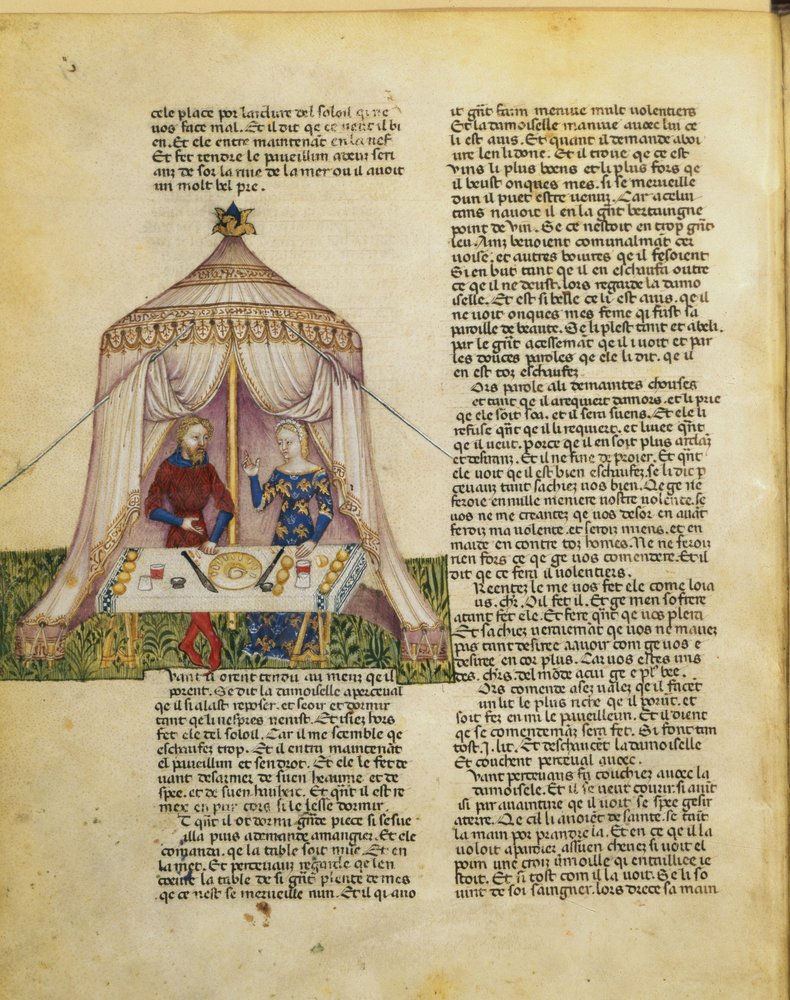 cele place por lardure del soloil qi ne
uos face mal. Et il dit qe ce ueut il bi
en. Et ele entre maintenãt en la nef
Et fet tendre le paueillun
de sor la riue de la mer ou il auoit
un molt bel pre.
uant il orent tendu au meuz que il
porent. Se dit la damoiselle a perceual
qe il si alast reposer. et seoir et dormir
tant qe li uespres uenist. Et issiez hors
fet ele del soloil. Car il me scemble qe
eschaufez trop. Et il entra maintenãt
el paueillun et sendrot. Et ele le fet de
uant desarmer de suen heaume et de
spee. et de suen hauberc. Et qñt il est re
mex en pur cors si le lesse dormir.
T qñt il ot dormi gñde piece si sesue
alla puis a demande a mangier. Et ele
comanda. qe la table soit mise. Et en
la met. Et perceuaus regarde qe len
coeuure la table de si gñt plente de mes
qe ce nest se merueille nun. Et il qi auo
it gñt faim meniue mult uolentiers
Et la damoiselle maniue auoec lui ce
li est auis. Et quant il demande a boi
ure len li done. Et il troue qe ce est
uins li plus boens et li plus fors qe
il beust onques mes. si se merueille
dun il puet estre uenuz. Car a celui
tans nauoit il en la gñt bertaingne
point de uin. Se ce nestoit en trop gñt
leu. Ainz beuoient comunalmãt cer
uoise. et autres boiures qe il fesoient
Si en but tant qe il en eschaufa outre
ce qe il ne deust. lors regarde la damo
iselle. Et est si belle ce li est auis. qe il
ne uoit onques mes feme qi fust sa
paroille de beaute. Se li plest tant et abeli.
par le gñt acessemãt qe il i uoit et par
les douces paroles qe ele li dit. qe il
en est toz eschaufez
Ors parole a li de maintes chouses
et tant qe il a requiert damors. et li prie
qe ele soit soa. et il sera suens. Et ele li
refuse qñt qe il li requiert. et
qe il ueut. porce qe il en soit plus ardãz
et desiranz. Et il ne fine de proier. Et qñt
ele uoit qe il est bien eschaufez. se li dit p
ceuaus tant sachiez uos bien. Qe ge ne
feroie en nulle meniere uostre uolente. se
uos ne me creantez qe uos desor en auãt
feroiz ma uolente. et seroiz miens. et en
maide en contre toz homes. Ne ne feroiz
rien fors ce qe ge uos comendere. Et il
dit qe ce fera il uolentiers.
Reentez le me uos fet ele come loia
us. chr. Oil fet il. Et ge men sofrere
atant fet ele. Et fere qñt qe uos plera
Et sachiez ueraiemãt qe uos ne mauez
pas tant desiree a auoir com ge uos e
desiree en cor plus. Car uos estes uns
des. chrs. del mõde a cui ge e pl9 bee.
Ors comende a sez ualez qe il facet
un lit le plus riche qe il porut. et
soit fez en mi le paueilleun. Et il dient
qe se comendemãt sera fet. Si font tan
tost .j. lit. Et deschaucẽt la damoiselle
Et couchent perceual auoec.
uant perceuaus fu couchiez auoec la
damoisele. Et il se ueut courir. si auit
isi par auainture qe il uoit se spee gesir
a terre. Qe cil li auoiẽt desainte. se tant
la main por prandre la. Et en ce qe il la
uoloit apoier a suen cheuez si uoit el
poim une croiz uermoille qi entaillice ie
stoit. Et si tost com il la uoit. Se li so
uint de soi saingner. lors drece sa main